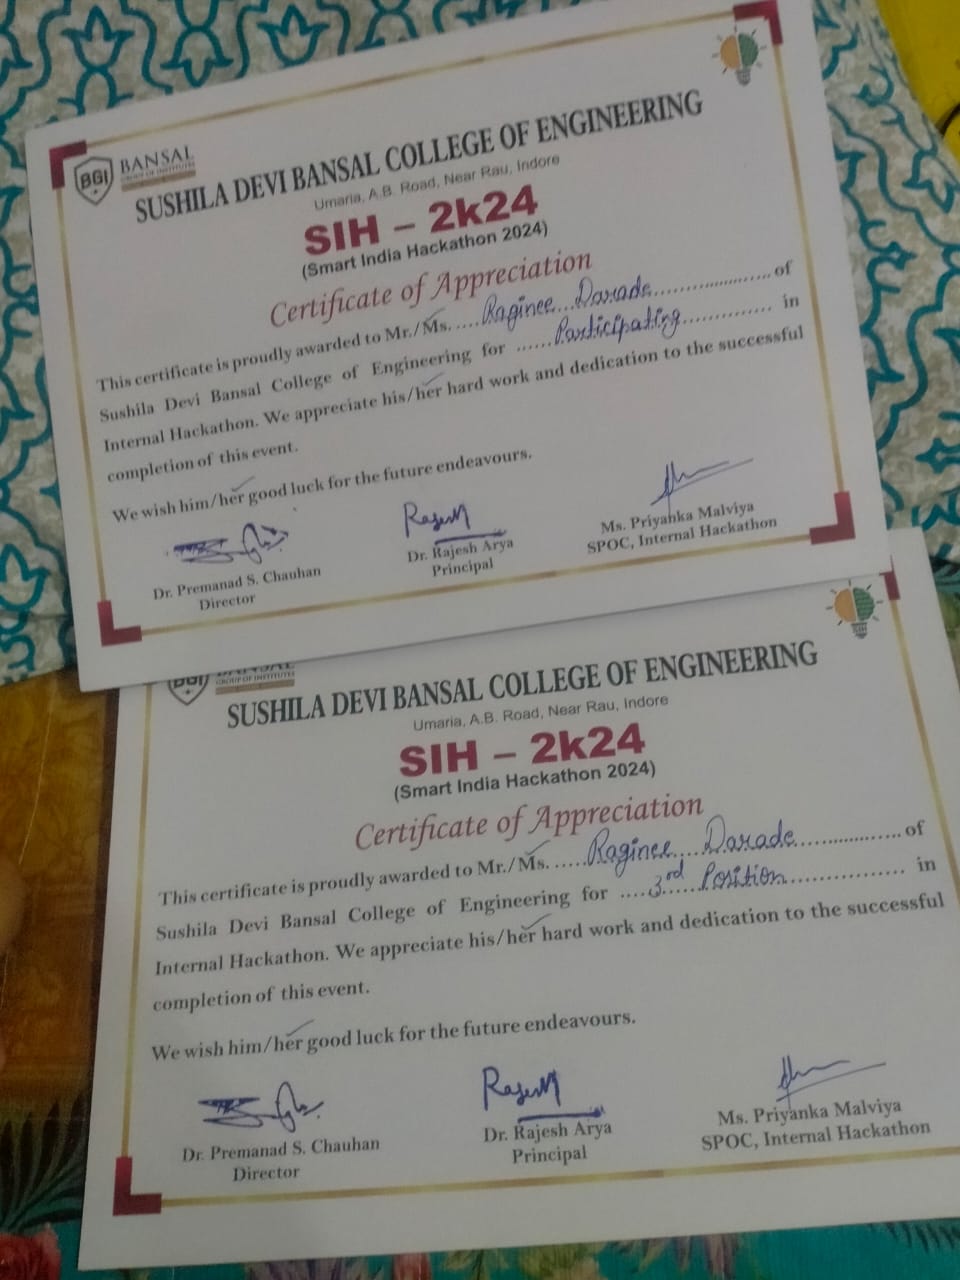 BGI
BANSAL
GROUP OF INSTITUTES
SUSHILA DEVI BANSAL COLLEGE OF ENGINEERING
Umaria, A.B. Road, Near Rau, Indore
SIH – 2k24
(Smart India Hackathon 2024)
Certificate of Appreciation
This certificate is proudly awarded to Mr./Ms. .....Raginee...Darade.....................of
Sushila Devi Bansal College of Engineering for ......Participating............... in
Internal Hackathon. We appreciate his/her hard work and dedication to the successful
completion of this event.
We wish him/her good luck for the future endeavours.
Rajesh
Dr. Premanad S. Chauhan
Director
Dr. Rajesh Arya
Principal
Ms. Priyanka Malviya
SPOC, Internal Hackathon
BGI
BANSAL
GROUP OF INSTITUTES
SUSHILA DEVI BANSAL COLLEGE OF ENGINEERING
Umaria, A.B. Road, Near Rau, Indore
SIH – 2k24
(Smart India Hackathon 2024)
Certificate of Appreciation
This certificate is proudly awarded to Mr./Ms. .....Raginee...Darade...............of
Sushila Devi Bansal College of Engineering for ....3rd...Position.................. in
Internal Hackathon. We appreciate his/her hard work and dedication to the successful
completion of this event.
We wish him/her good luck for the future endeavours.
Rajesh
Dr. Premanad S. Chauhan
Director
Dr. Rajesh Arya
Principal
Ms. Priyanka Malviya
SPOC, Internal Hackathon